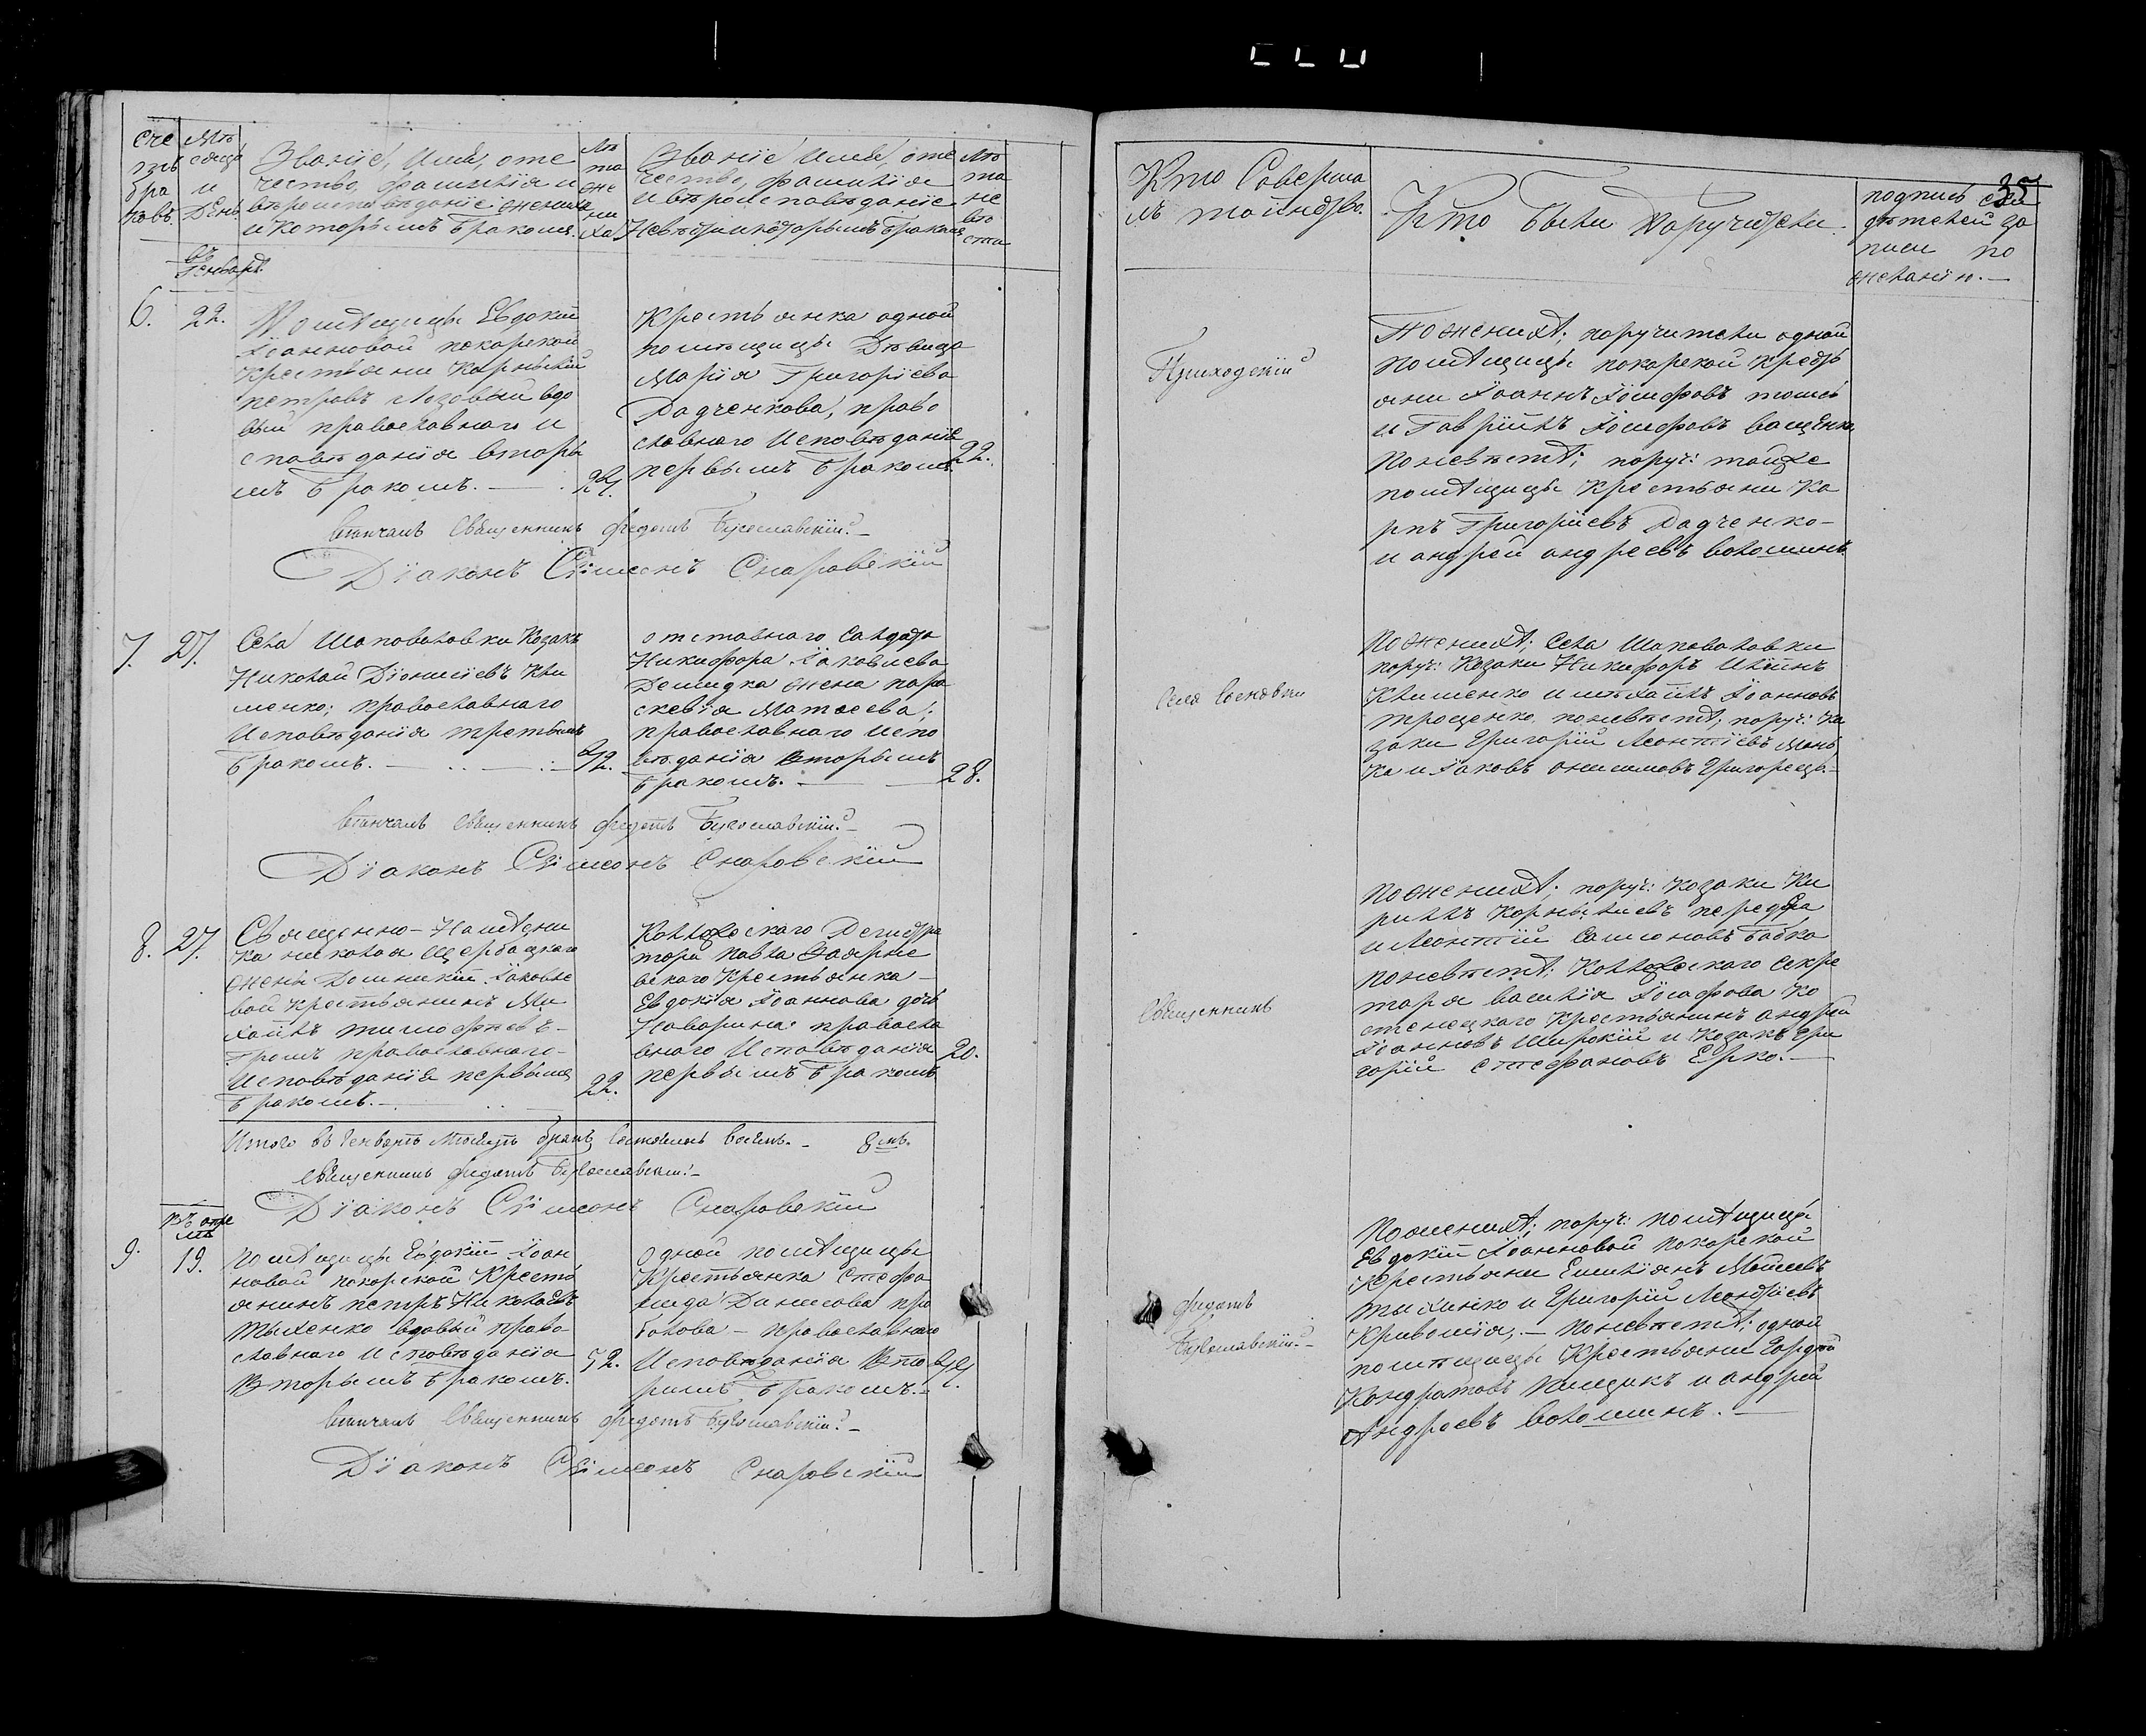 Сче
тъ
бра
ковъ.
Мѣ
сяцъ
и
День
Званіе, Имя, оте
чество, фамилія и
вѣроисповѣданіе жениха
и которымъ бракомъ.
Лѣ
та
же
ни
ха
Званіе Имя, оте
чество, фамилія
и вѣроисповѣданіе
Невѣсты и которымъ бракомъ
Лѣ
та
не
вѣ
сты
Кто Соверша
лъ таинство.
Кто были Поручители.
подпись сви
дѣтелей за
писи по
желанію.—
35
въ
Генварѣ
6.
22.
Помѣщицы Евдокіи
Іоанновой покорской
Крестьянинъ Корнилій
петровъ Лозовый вдо
вый православнаго и
сповѣданія вторы
мъ бракомъ.—
24.
Крестьянка одной
помѣщицы Дѣвица
Марія Григоріева
Дадченкова, право
славнаго Исповѣданія
первымъ бракомъ
22.
Приходскій
По женихѣ: поручители одной
помѣщицы покорской крестъ
яни Іоаннъ Іосифовъ
и Гавріилъ Іосифовъ ващенко
по невѣстѣ; поруч: тойже
помѣщицы Крестьяни Ка
рпъ Григоріевъ Дадченко—
и андрей андреевъ волошинъ
Вѣнчалъ Священникъ Федотъ Бугославскій.—
Діаконъ Сімеонъ Снаровскій
7.
27.
Села Шаповаловки Козакъ
Николай Діонисіевъ Кли
менко; православнаго
Исповѣданія третьимъ
бракомъ.—
42.
отставнаго Салдата
Никифора Іаковлева
Демидка жена пара
скевія Матѳеева;
православнаго Испо
вѣданія вторымъ
бракомъ.—
28.
По женихѣ; Села Шаповаловки
поруч: Козаки Никифоръ Иліинъ
Клименко и михаилъ Іоанновъ
троценко по невѣстѣ; поруч: Ка
заки Григорій Леонтіевъ
Ка и Іаковъ онисимовъ
Вѣнчалъ Священникъ Федотъ Бугославскій.—
Діаконъ Сімеонъ Снаровскій
8.
27.
Священно-Намѣсни
ка николая Щербацкаго
жены Домникіи Іаковле
вой крестьянинъ Ми
хаилъ тимофѣевъ—
православнаго—
Исповѣданія первымъ
бракомъ.—
22.
Коллежскаго Регистра
тора павла
Крестьянка—
Евдокія Іоаннова дочь
правосла
внаго Исповѣданія
первымъ бракомъ
20.
Священникъ
По женихѣ; поруч: козаки Ки
риллъ Корниліевъ
и Леонтій Самсоновъ бабка
по невѣстѣ; Коллежскаго Секре
таря василія Іосифова Ко
стенецкаго Крестьянинъ андрей
Іоанновъ Широкій и Козакъ Гри
горій стефановъ Ерко.—
Итого въ Генварѣ мѣсяцѣ бракъ восемь.— 8мь.
Священникъ Федотъ Бугославскій.—
Діаконъ Сімеонъ Снаровскій
Въ апре
лѣ
9.
19.
помѣщицы Евдокіи Іоан
новой покорской Кресть
янинъ петръ Николаевъ
Тыхенко вдовый право—
славнаго Исповѣданія
Вторымъ бракомъ.
52.
Одной помѣщицы
Крестьянка Стефа
нида Данилова
православнаго
Исповѣданія вто
римъ бракомъ.—
Федотъ
Бугославскій.—
По женихѣ; поруч: помѣщицы
Евдокіи Іоанновой покорской
Крестьяни Емиліянъ Моѵсеевъ
и Григорій
по невѣстѣ; одной
помѣщицы Крестьяни
Кондратовъ и андрей
Андреевъ волошинъ.—
Вѣнчалъ Священникъ Федотъ Бугославскій.—
Діаконъ Сімеонъ Снаровскій